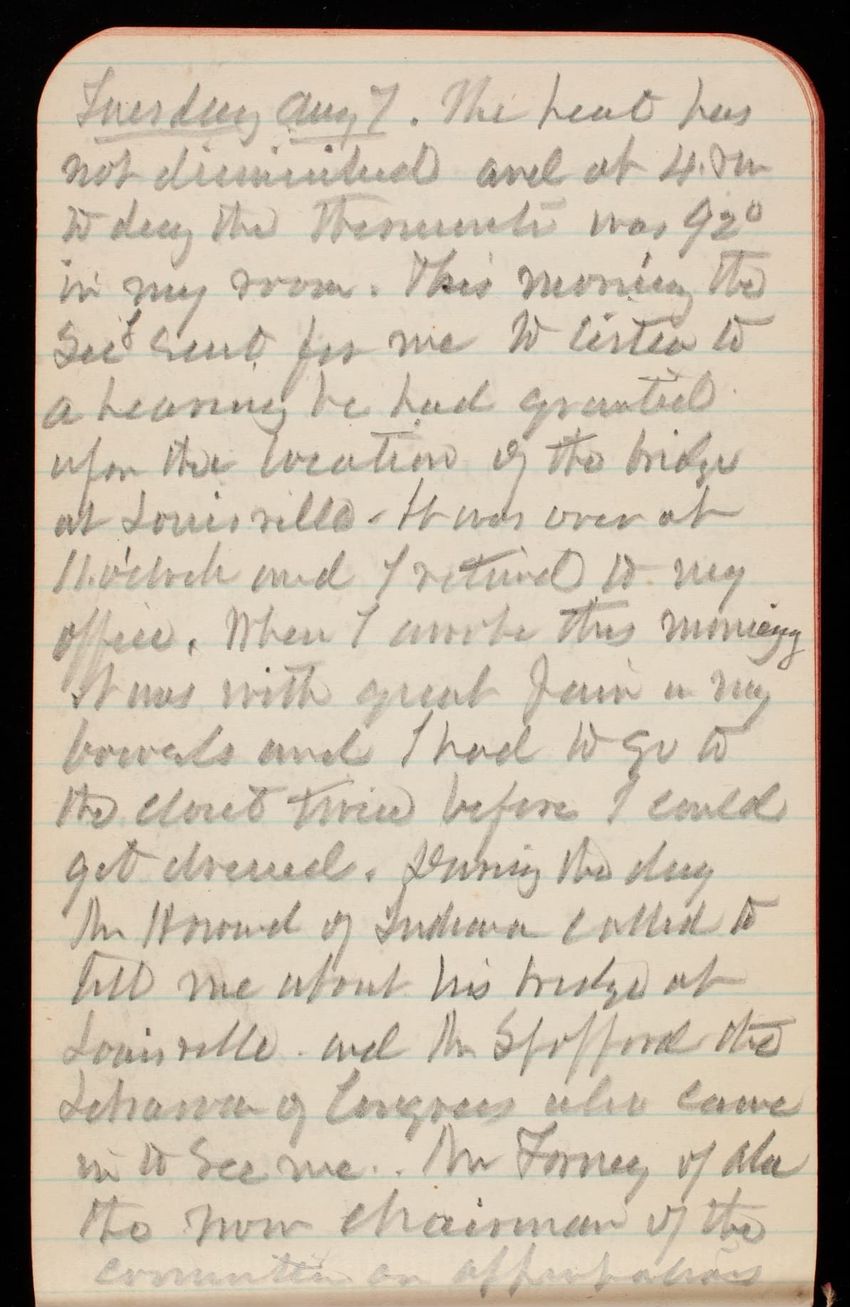 Tuesday Aug 7. The heat has
not diminished and at 4. PM
to day the thermometer was 92°
in my room. This morning the
Secy sent for me to listen to
a hearing he had granted
upon the location of the bridge
at Louisville - It was over at
11.o'clock and I retired to my
office. When I awoke this morning
it was with great pain in my
bowels and I had to go to
the closet twice before I could
get dressed. During the day
Mr Howard of Indiana called to
tell me about his bridge at
Louisville. and Mr Spofford the
Librarian of Congress also came
in to see me.. Mr Forney of Ala
the now chairman of the
committee on appropriations